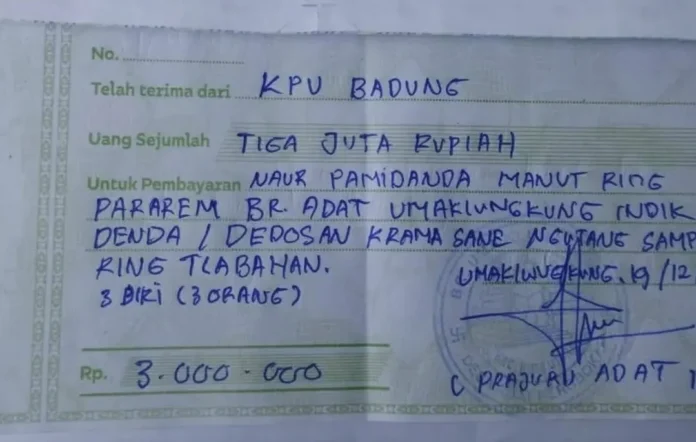 No.
Telah terima dari KPU BADUNG
Uang Sejumlah TIGA JUTA RUPIAH
Untuk Pembayaran NAUR PAMIDANDA MANUT RING
PARAREM BR. ADAT UMAKLUNGKUNG INDIK
DENDA / DEDOSAN KRAMA SANE NGUTANG SAMP
RING TLABAHAN.
3 BIKI (3 ORANG)
UMAKLUNGKUNG. 19/12
Rp. 3.000.000
( PRAJURU ADAT